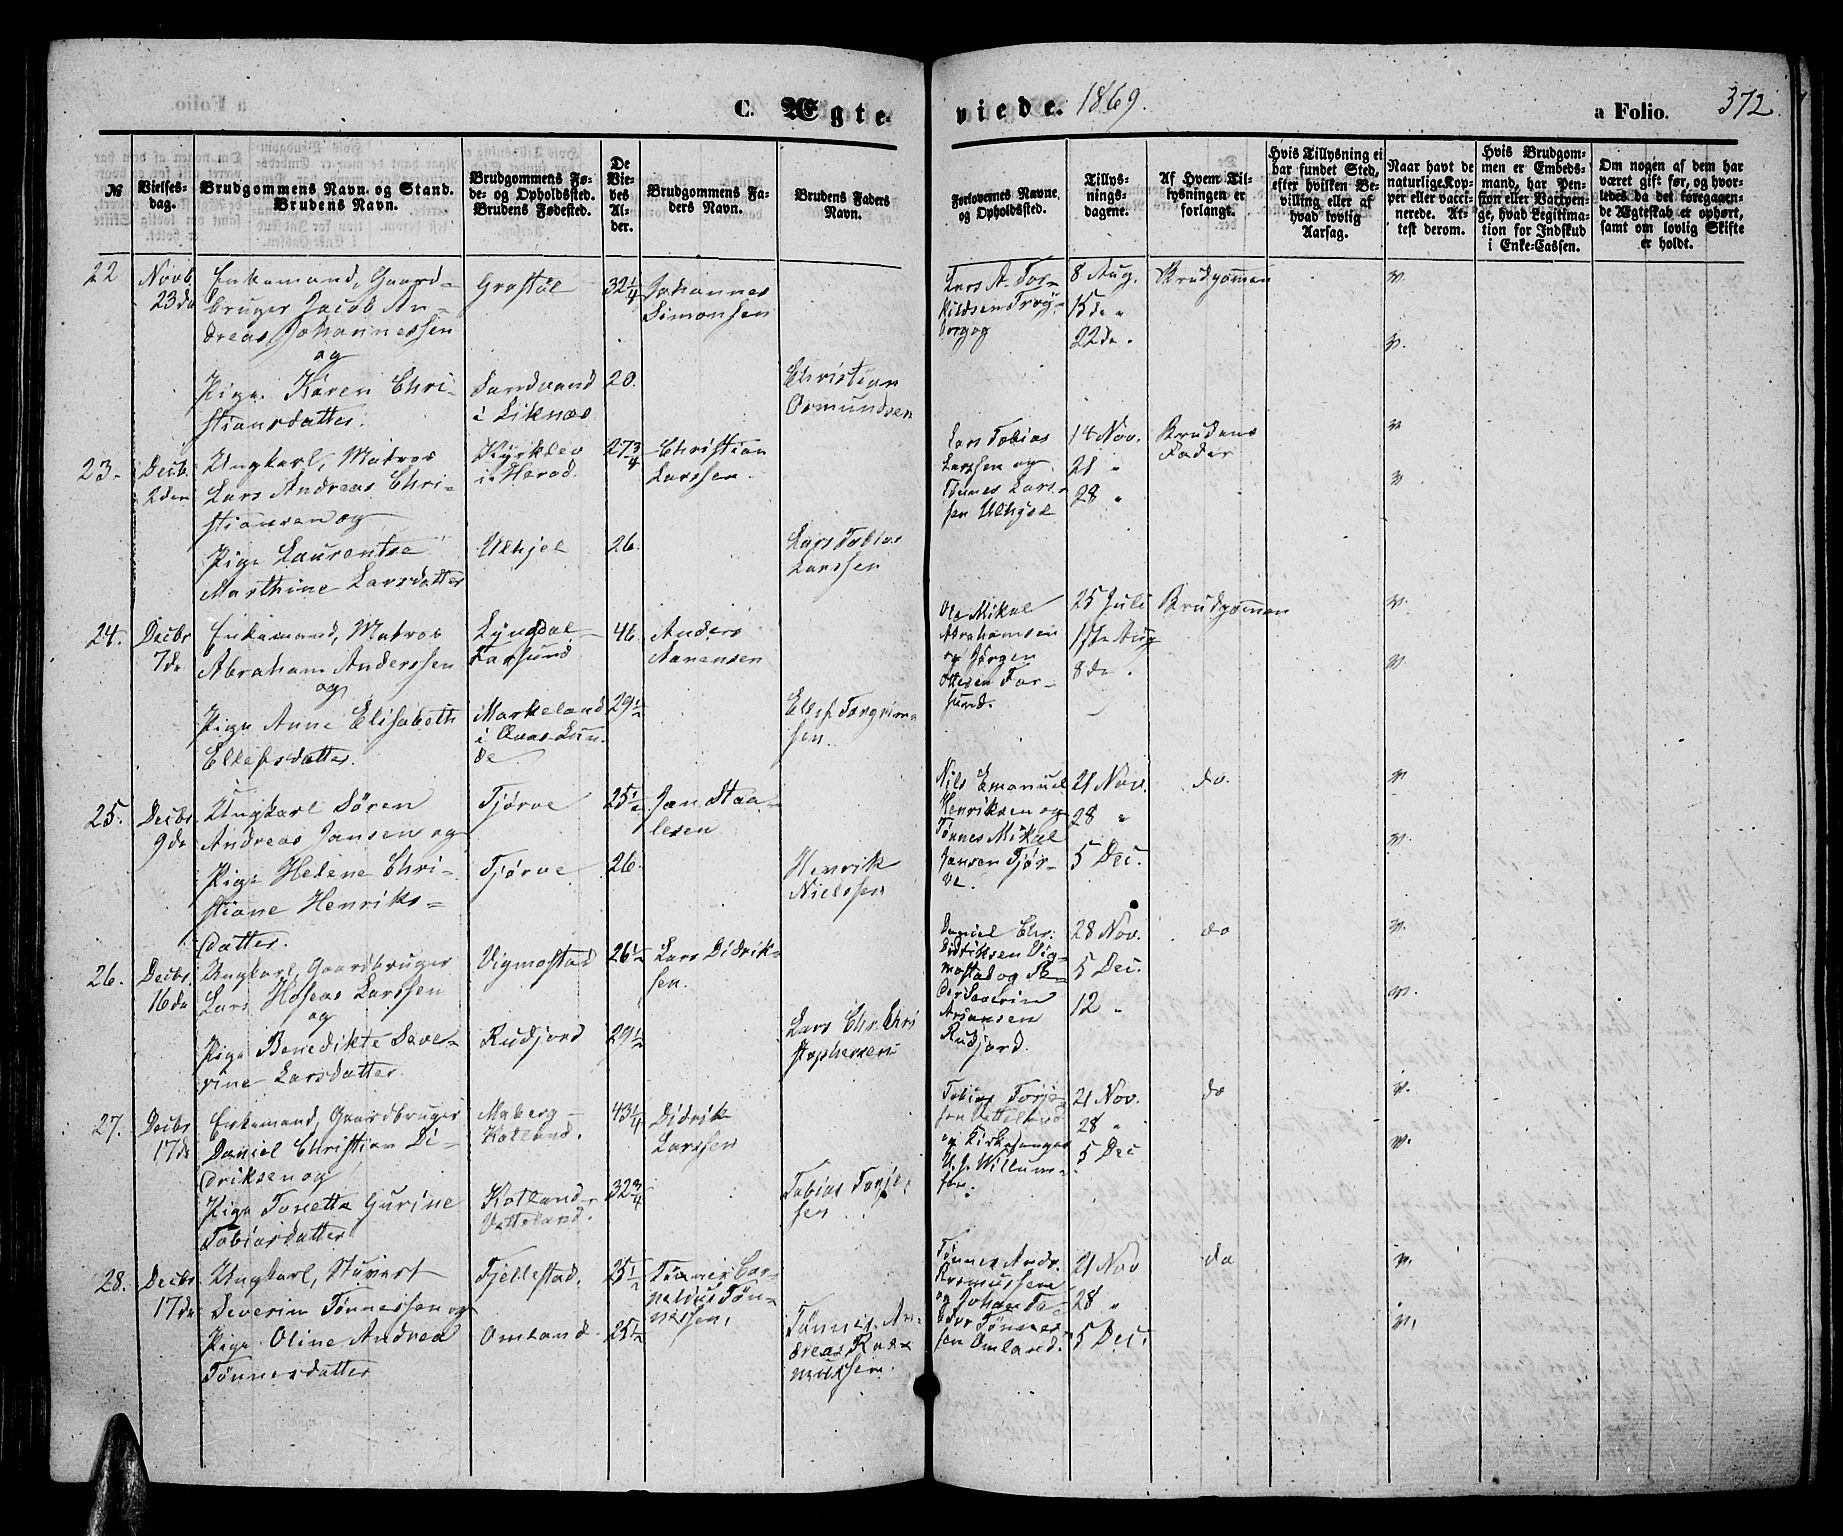 C. Ægte-
viede. 1869.
a Folio. 372.
№
Vielses-
dag.
Brudgommens Navn. og Stand.
Brudens Navn.
Brudgommens Fø-
de- og Opholdssted.
Brudens Fødested.
De
Vie-
des
Al-
der.
Brudgommens Fa-
ders Navn.
Brudens Faders
Navn.
Forlovernes Navne
og Opholdssted.
Tillys-
nings-
dagene.
Af Hvem Til-
lysningen er
forlangt.
Hvis Tillysning ei
har fundet Sted,
efter hvilken Be-
villing eller af
hvad lovlig
Aarsag.
Naar havt de
naturlige Kop-
per eller vacci-
nerede. At-
test derom.
Hvis Brudgom-
men er Embeds-
mand, har Pen-
sion eller Vartpen-
ge, hvad Legitima-
tion for Indskud
i Enke-Cassen.
Om nogen af dem har
været gift før, og hvor-
ledes da det foregaaen-
de Ægteskab er ophørt,
samt om lovlig Skifte
er holdt.
22
Novb.
23de
Enkemand, Gaard-
bruger Jacob An-
dreas Johannessen
og
Pige Karen Chri-
stiansdatter.
Grostøl
Sandvand
i Liknæs
32 1/4
20.
Johannes
Simonsen
Christian
Osmundsen
Lars A. Tor-
kildsen
og
8 Aug.
15de "
22de "
Brudgommen
v.
v.
23.
Decb.
2den
Ungkarl, Matros
Lars Andreas Chri-
stiansen og
Pige Laurentse
Marthine Larsdatter
i Herad.
Ulhjel
27 3/4
26.
Christian
Larssen.
Lars Tobias
Larssen
Lars Tobias
Larssen og
Tønnes Lars-
sen Ulhjel
14 Nov.
21 "
28 "
Brudens
Fader
v
v
24.
Decbr
7de
Enkemand, Matros
Abraham Anderssen
og
Pige Anne Elisabeth
Ellefsdatter.
Lyngdal-
Farsund
Markeland
i Qvas Sun-
de
46.
29 1/2
Anders
Aanensen
Ellef Torgrims
sen.
Ole Mikal
Abrahamsen
og Jørgen
Ottesen Far-
sund.
25 Juli
1ste Aug
8de "
Brudgommen
v.
v.
25.
Decbr
9de
Ungkarl Søren
Andreas Jansen og
Pige Helene Chri-
stiane Henriks-
datter.
Tjørve
Tjørve
25 1/2
26.
Jan Staa-
lesen
Henrik
Nielssen
Nils Emanuel
Henriksen og
Tønnes Mikal
Jansen Tjør-
ve.
21 Nov.
28 "
5 Dec.
do.
v
v.
26.
Decbr
16de
Ungkarl, Gaardbruger
Lars Hoseas Larssen
og
Pige Benedikte Seve-
rine Larsdatter.
Vigmostad
Rudjord
26 1/2
29 1/2
Lars Didrik-
sen.
Lars Chr. Chri
stophersen
Daniel Chr.
Didriksen Vig-
mostad og Pe-
der Severin
Rudjord.
28 Nov.
5 Dec.
12 "
do
v.
v.
27.
Decbr
17de
Enkemand, Gaardbruger
Daniel Christian Di-
driksen og
Pige Tonette Gurine
Tobiasdatter
Maberg-
Kotland.
Kotland-
Vatteland.
43 1/4
32 3/4
Didrik
Larssen
Tobias Torje-
sen
Tobias Torje-
sen Vatteland
og Kirkesanger
Willum-
sen.
21 Nov.
28 "
5 Dec
do
v.
v.
28.
Decbr
17de
Ungkarl, Stuvert
Severin Tønnessen og
Pige Oline Andrea
Tønnesdatter
Fjellestad.
Omland.
25 1/2
25 1/2
Tønnes Cor-
nelius Tøn-
nessen.
Tønnes An-
dreas Ras-
mussen.
Tønnes Andr.
Rasmussen
og Johan Te-
odor Tønnes-
sen Omland.
21 Nov
28 "
5 Dec.
do
v.
v.